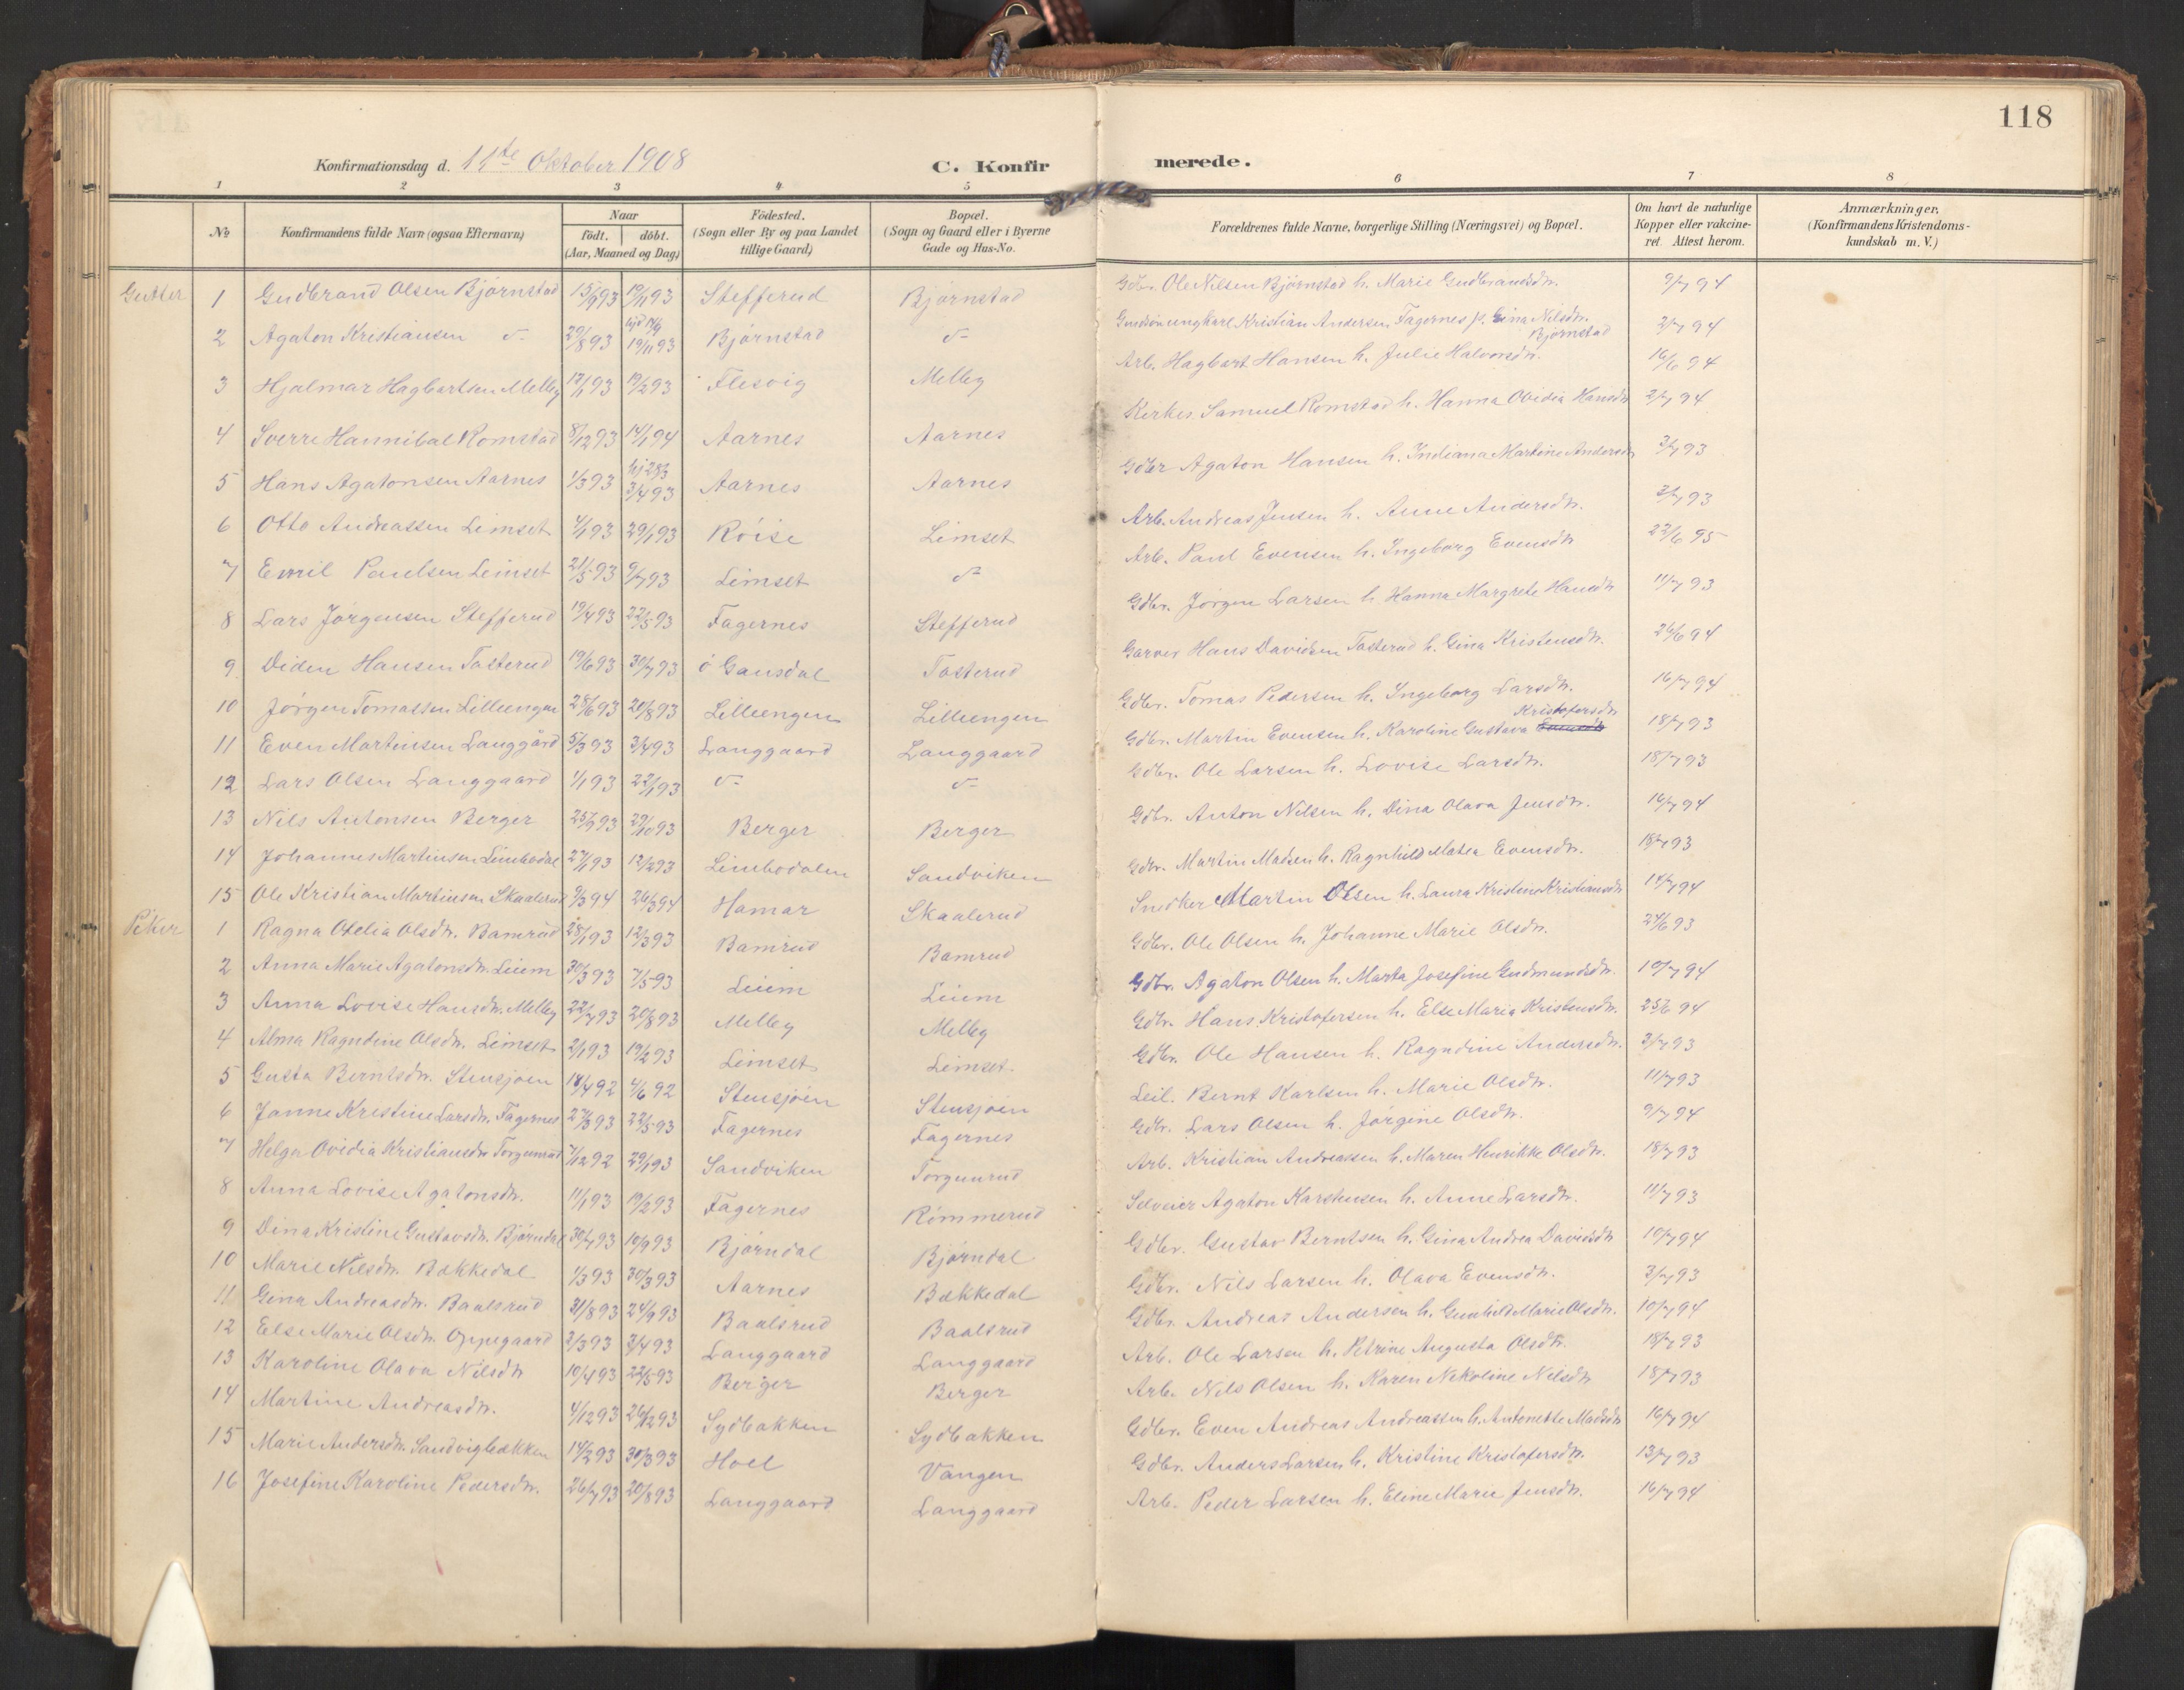 118
Konfirmationsdag d. 11te Oktober 1908 C. Konfirmerede.
1 2 3 4 5 6 7 8
№ Konfirmandens fulde Navn (ogsaa Efternavn) Naar født. døbt. (Aar, Maaned og Dag) Födested. (Sogn eller By og paa Landet tillige Gaard) Bopæl. (Sogn og Gaard eller i Byerne Gade og Hus-No. Forældrenes fulde Navne, borgerlige Stilling (Næringsvei) og Bopæl. Om havt de naturlige Kopper eller vakcineret. Attest herom. Anmærkninger. (Konfirmandens Kristendomskundskab m. V.)
Gutter 1 Gudbrand Olsen Bjørnstad 15/9 93 19/11 93 Stefferud Bjørnstad Gdbr. Ole Nilsen Bjørnstad h. Marie Gudbrandsdtr. 9/7 94
2 Agaton Kristiansen 29/8 93 19/11 93 Bjørnstad Kristian Andersen Fagernes p. Gina Nilsdtr. Bjørnstad 2/7 94
3 Hjalmar Hagbartsen Melby 12/1 93 19/2 93 Flesvig Melby Arb. Hagbart Hansen h. Julie Halvorsdtr. 16/6 94
4 Sverre Hannibal Romstad 8/12 93 14/1 94 Aarnes Aarnes Kirkes. Samuel Romstad h. Hanna Ovidia Hansdtr 2/7 94
5 Hans Agatonsen Aarnes 1/3 93 3/4 93 Aarnes Aarnes Gdbr Agaton Hansen h. Indiana Martine Andersdtr 3/7 93
6 Otto Andreassen Limset 4/1 93 29/1 93 Röise Limset Arb. Andreas Jensen h. Anne Andersdtr. 3/7 93
7 Emil Paulsen Limset 21/5 93 9/7 93 Limset Arb. Paul Evensen h. Ingeborg Evensdtr 22/6 95
8 Lars Jørgensen Stefferud 19/4 93 22/5 93 Fagernes Stefferud Gdbr. Jørgen Larsen h. Hanna Margrete Hansdtr 11/7 93
9 Diden Hansen Tasterud 19/6 93 30/7 93 Ö Gausdal Tasterud Garver Hans Davidsen Tasterud h. Gina Kristensdtr. 26/6 94
10 Jørgen Tomassen Lilleengen 28/6 93 20/8 93 Lilleengen Lilleengen Gdbr. Tomas Pedersen h. Ingeborg Larsdtr. 16/7 94
11 Even Martinsen Langgård 5/3 93 3/4 93 Langgaard Langgaard Gdbr. Martin Evensen h. Karoline Gustava Kristofersdtr 18/7 93
12 Lars Olsen Langgaard 1/1 93 22/1 93 Gdbr. Ole Larsen h. Lovise Larsdtr. 18/7 93
13 Nils Antonsen Berger 25/9 93 29/10 93 Berger Berger Gdbr. Anton Nilsen h. Dina Olava Jensdtr. 16/7 94
14 Johannes Martinsen Limbodal 27/1 93 12/2 93 Limbodalen Sandviken Gdbr. Martin Madsen h. Ragnhild Matea Evensdtr. 18/7 93
15 Ole Kristian Martinsen Skaalerud 9/3 94 26/3 94 Hamar Skaalerud Snedker Martin Olsen h. Laura Kristine Kristiansdtr 14/7 94
Piker 1 Ragna Otelia Olsdtr. Bamrud 28/1 93 12/3 93 Bamrud Bamrud Gdbr. Ole Olsen h. Johanne Marie Olsdtr. 24/6 93
2 Anna Marie Agatonsdtr. Liem 30/3 93 7/5 93 Gdbr. Agaton Olsen h. Marta Josefine Gudmundsdtr. 10/7 94
3 Anna Lovise Hansdtr. Melby 22/7 93 20/8 93 Melby Melby Gdbr. Hans Kristofersen h. Else Maria Kristensdtr. 25/6 94
4 Alma Ragndine Olsdtr. Limset 2/1 93 19/2 93 Limset Limset. Gdbr. Ole Hansen h. Ragndine Andersdtr. 3/7 93
5 Gusta Berntsdtr. Stensjøen 18/4 92 4/6 92 Stensjøen Stensjøen Leil. Bernt Karlsen h. Marie Olsdtr. 11/7 93
6 Janne Kristine Larsdtr. Fagernes 27/3 93 22/5 93 Fagernes Fagernes Gdbr. Lars Olsen h. Jørgine Olsdtr. 9/7 94
7 Helga Ovidia Kristiansdtr Torgunrud 7/12 92 29/1 93 Sandviken Torgunrud Arb. Kristian Andreassen h. Maren Henrikke Olsdtr. 18/7 93
8 Anna Lovise Agatonsdtr. 11/1 93 19/2 93 Fagernes Rømmerud Selveier Agaton Karstensen h. Anne Larsdtr. 11/7 93
9 Dina Kristine Gustavsdtr. Bjørndal 30/7 93 10/9 93 Bjørndal Bjørndal Gdbr. Gustav Berntsen h. Gina Andrea Davidsdtr 10/7 94
10 Marie Nilsdtr. Bækkedal 1/3 93 30/3 93 Aarnes Bækkedal Gdbr. Nils Larsen h. Olava Evensdtr. 3/7 93
11 Gina Andreasdtr. Baalsrud 31/8 93 24/9 93 Baalsrud Baalsrud Gdbr. Andreas Andersen h. Gunhild Marie Olsdtr. 10/7 94
12 Else Marie Olsdtr. Oppegaard 3/3 93 3/4 93 Langgaard Langgaard Arb. Ole Larsen h. Petrine Augusta Olsdtr. 18/7 93
13 Karoline Olava Nilsdtr 10/4 93 22/5 93 Berger Berger Arb. Nils Olsen h. Karen Nikoline Nilsdtr 18/7 93
14 Martine Andreasdtr. 4/12 93 26/12 93 Sydbakken Sydbakken Gdbr. Even Andreas Andreassen h. Antonette Madsdtr 16/7 94
15 Marie Andersdtr. Sandvigbækken 14/2 93 30/3 93 Hoel Vangen Gdbr. Anders Larsen h. Kristine Kristofersdtr. 13/7 93
16 Josefine Karoline Pedersdtr. 26/7 93 20/8 93 Langgaard Langgaard Arb. Peder Larsen h. Eline Marie Jensdtr. 16/7 94